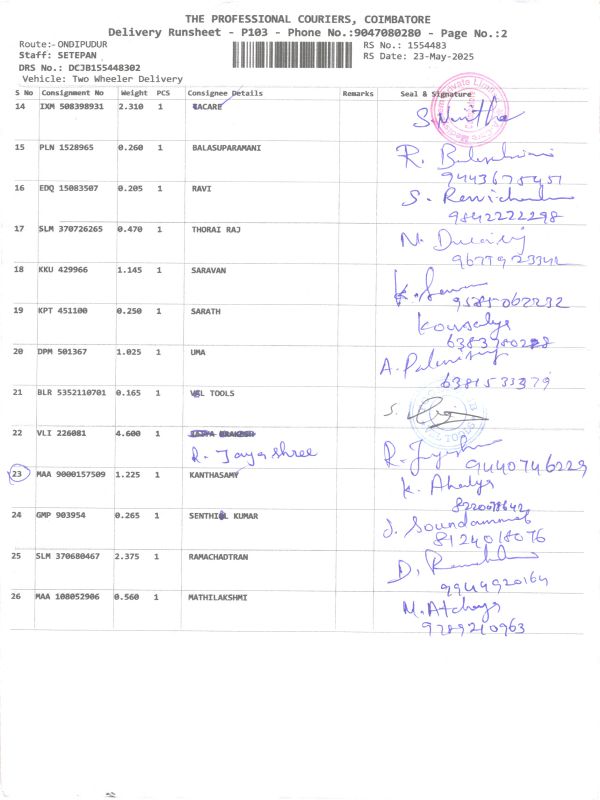 THE PROFESSIONAL COURIERS, COIMBATORE
Delivery Runsheet - P103 - Phone No.:9047080280 - Page No.:2
Route:- ONDIPUDUR RS No.: 1554483
Staff: SETEPAN RS Date: 23-May-2025
DRS No.: DCJB155448302
Vehicle: Two Wheeler Delivery
S No Consignment No Weight PCS Consignee Details Remarks Seal & Signature
14 IXM 508398931 2.310 1 TACARE
15 PLN 1528965 0.260 1 BALASUPARAMANI R.
9443675451
16 EDQ 15083507 0.205 1 RAVI S.
9842222298
17 SLM 370726265 0.470 1 THORAI RAJ
18 KKU 429966 1.145 1 SARAVAN K.
9585062232
19 KPT 451100 0.250 1 SARATH Kousalya
20 DPM 501367 1.025 1 UMA A.
6381533379
21 BLR 5352110701 0.165 1 TOOLS S.
22 VLI 226081 4.600 1
R. Jayashree R.
9440746229
23 MAA 9000157509 1.225 1 KANTHASAMY K. Ahalya
24 GMP 903954 0.265 1 SENTHIL KUMAR J.
8124018076
25 SLM 370680467 2.375 1 RAMACHADTRAN D.
9944920164
26 MAA 108052906 0.560 1 MATHILAKSHMI M. Atchaya
9289210963